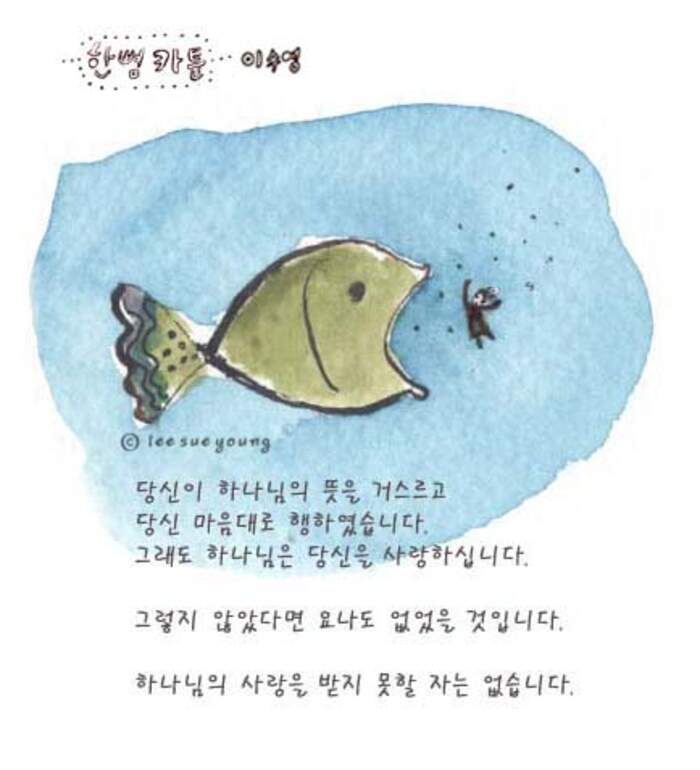 한뼘 카툰 이수영
© lee sue young
당신이 하나님의 뜻을 거스르고
당신 마음대로 행하였습니다.
그래도 하나님은 당신을 사랑하십니다.
그렇지 않았다면 요나도 없었을 것입니다.
하나님의 사랑을 받지 못할 자는 없습니다.